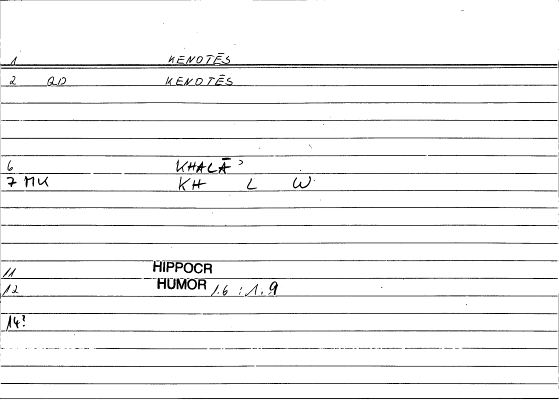 1 KENOTĒS
2 QD KENOTĒS
6 KHALĀʾ
7 MK KH L W
11 HIPPOCR
12 HUMOR 1.6 : 1.9
14?